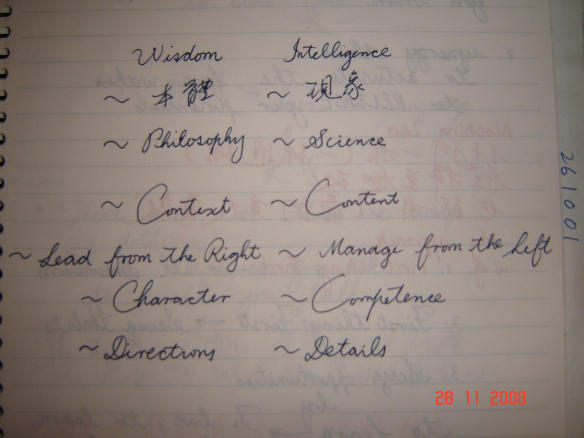 Wisdom Intelligence
~ 本體 ~ 現象
~ Philosophy ~ Science
~ Context ~ Content
~ Lead from the Right ~ Manage from the Left
~ Character ~ Competence
~ Directions ~ Details
261001
28 11 2008